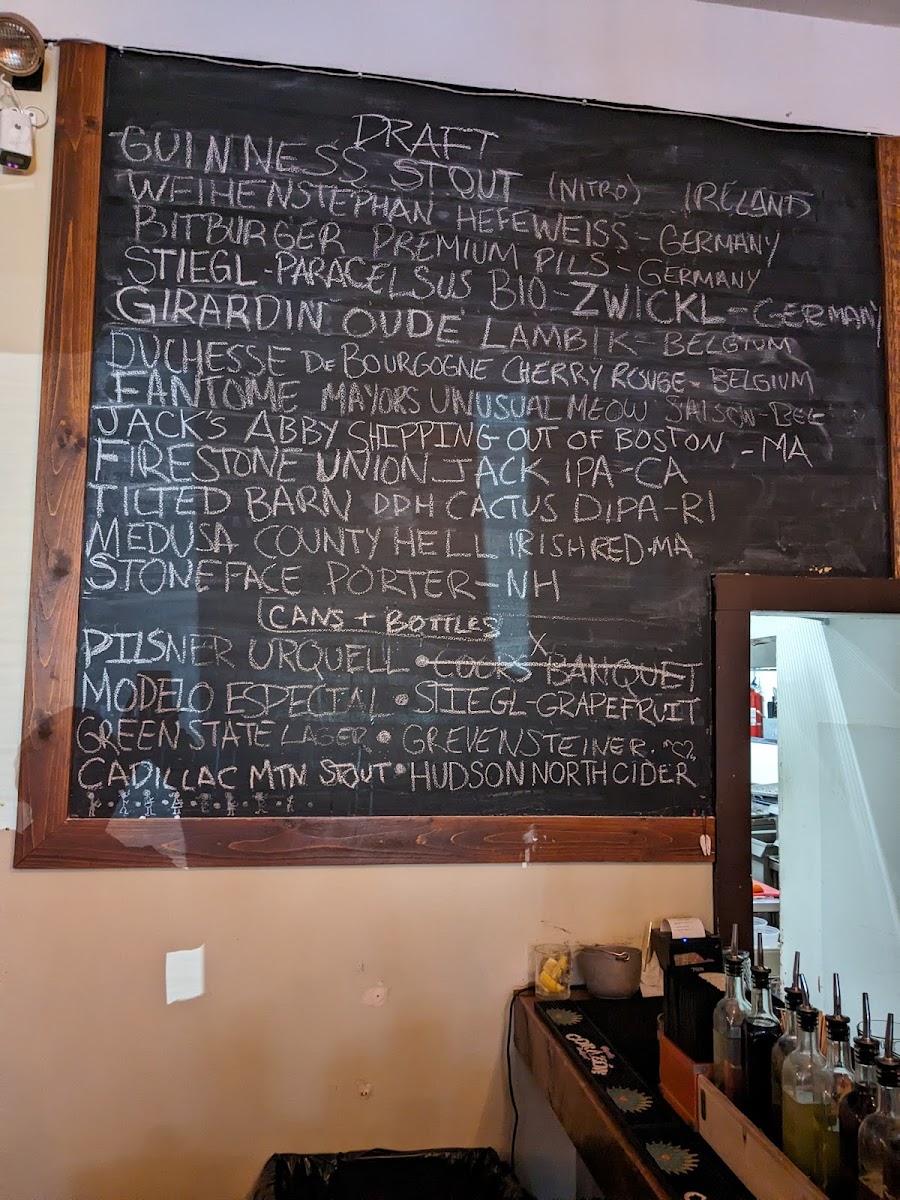 DRAFT
GUINNESS STOUT (NITRO) IRELAND
WEIHENSTEPHAN HEFEWEISS - GERMANY
BITBURGER PREMIUM PILS - GERMANY
STIEGL - PARACELSUS BIO - ZWICKL - GERMANY
GIRARDIN OUDE LAMBIK - BELGIUM
DUCHESSE DE BOURGOGNE CHERRY ROUGE - BELGIUM
FANTOME MAYORS UNUSUAL MEOW SAISON - BEL
JACKS ABBY SHIPPING OUT OF BOSTON - MA
FIRESTONE UNION JACK IPA - CA
TILTED BARN DDH CACTUS DIPA - RI
MEDUSA COUNTY HELL IRISH RED - MA
STONEFACE PORTER - NH
CANS + BOTTLES
PILSNER URQUELL • COORS BANQUET X
MODELO ESPECIAL • STIEGL - GRAPEFRUIT
GREEN STATE LAGER • GREVENSTEINER
CADILLAC MTN STOUT • HUDSON NORTH CIDER